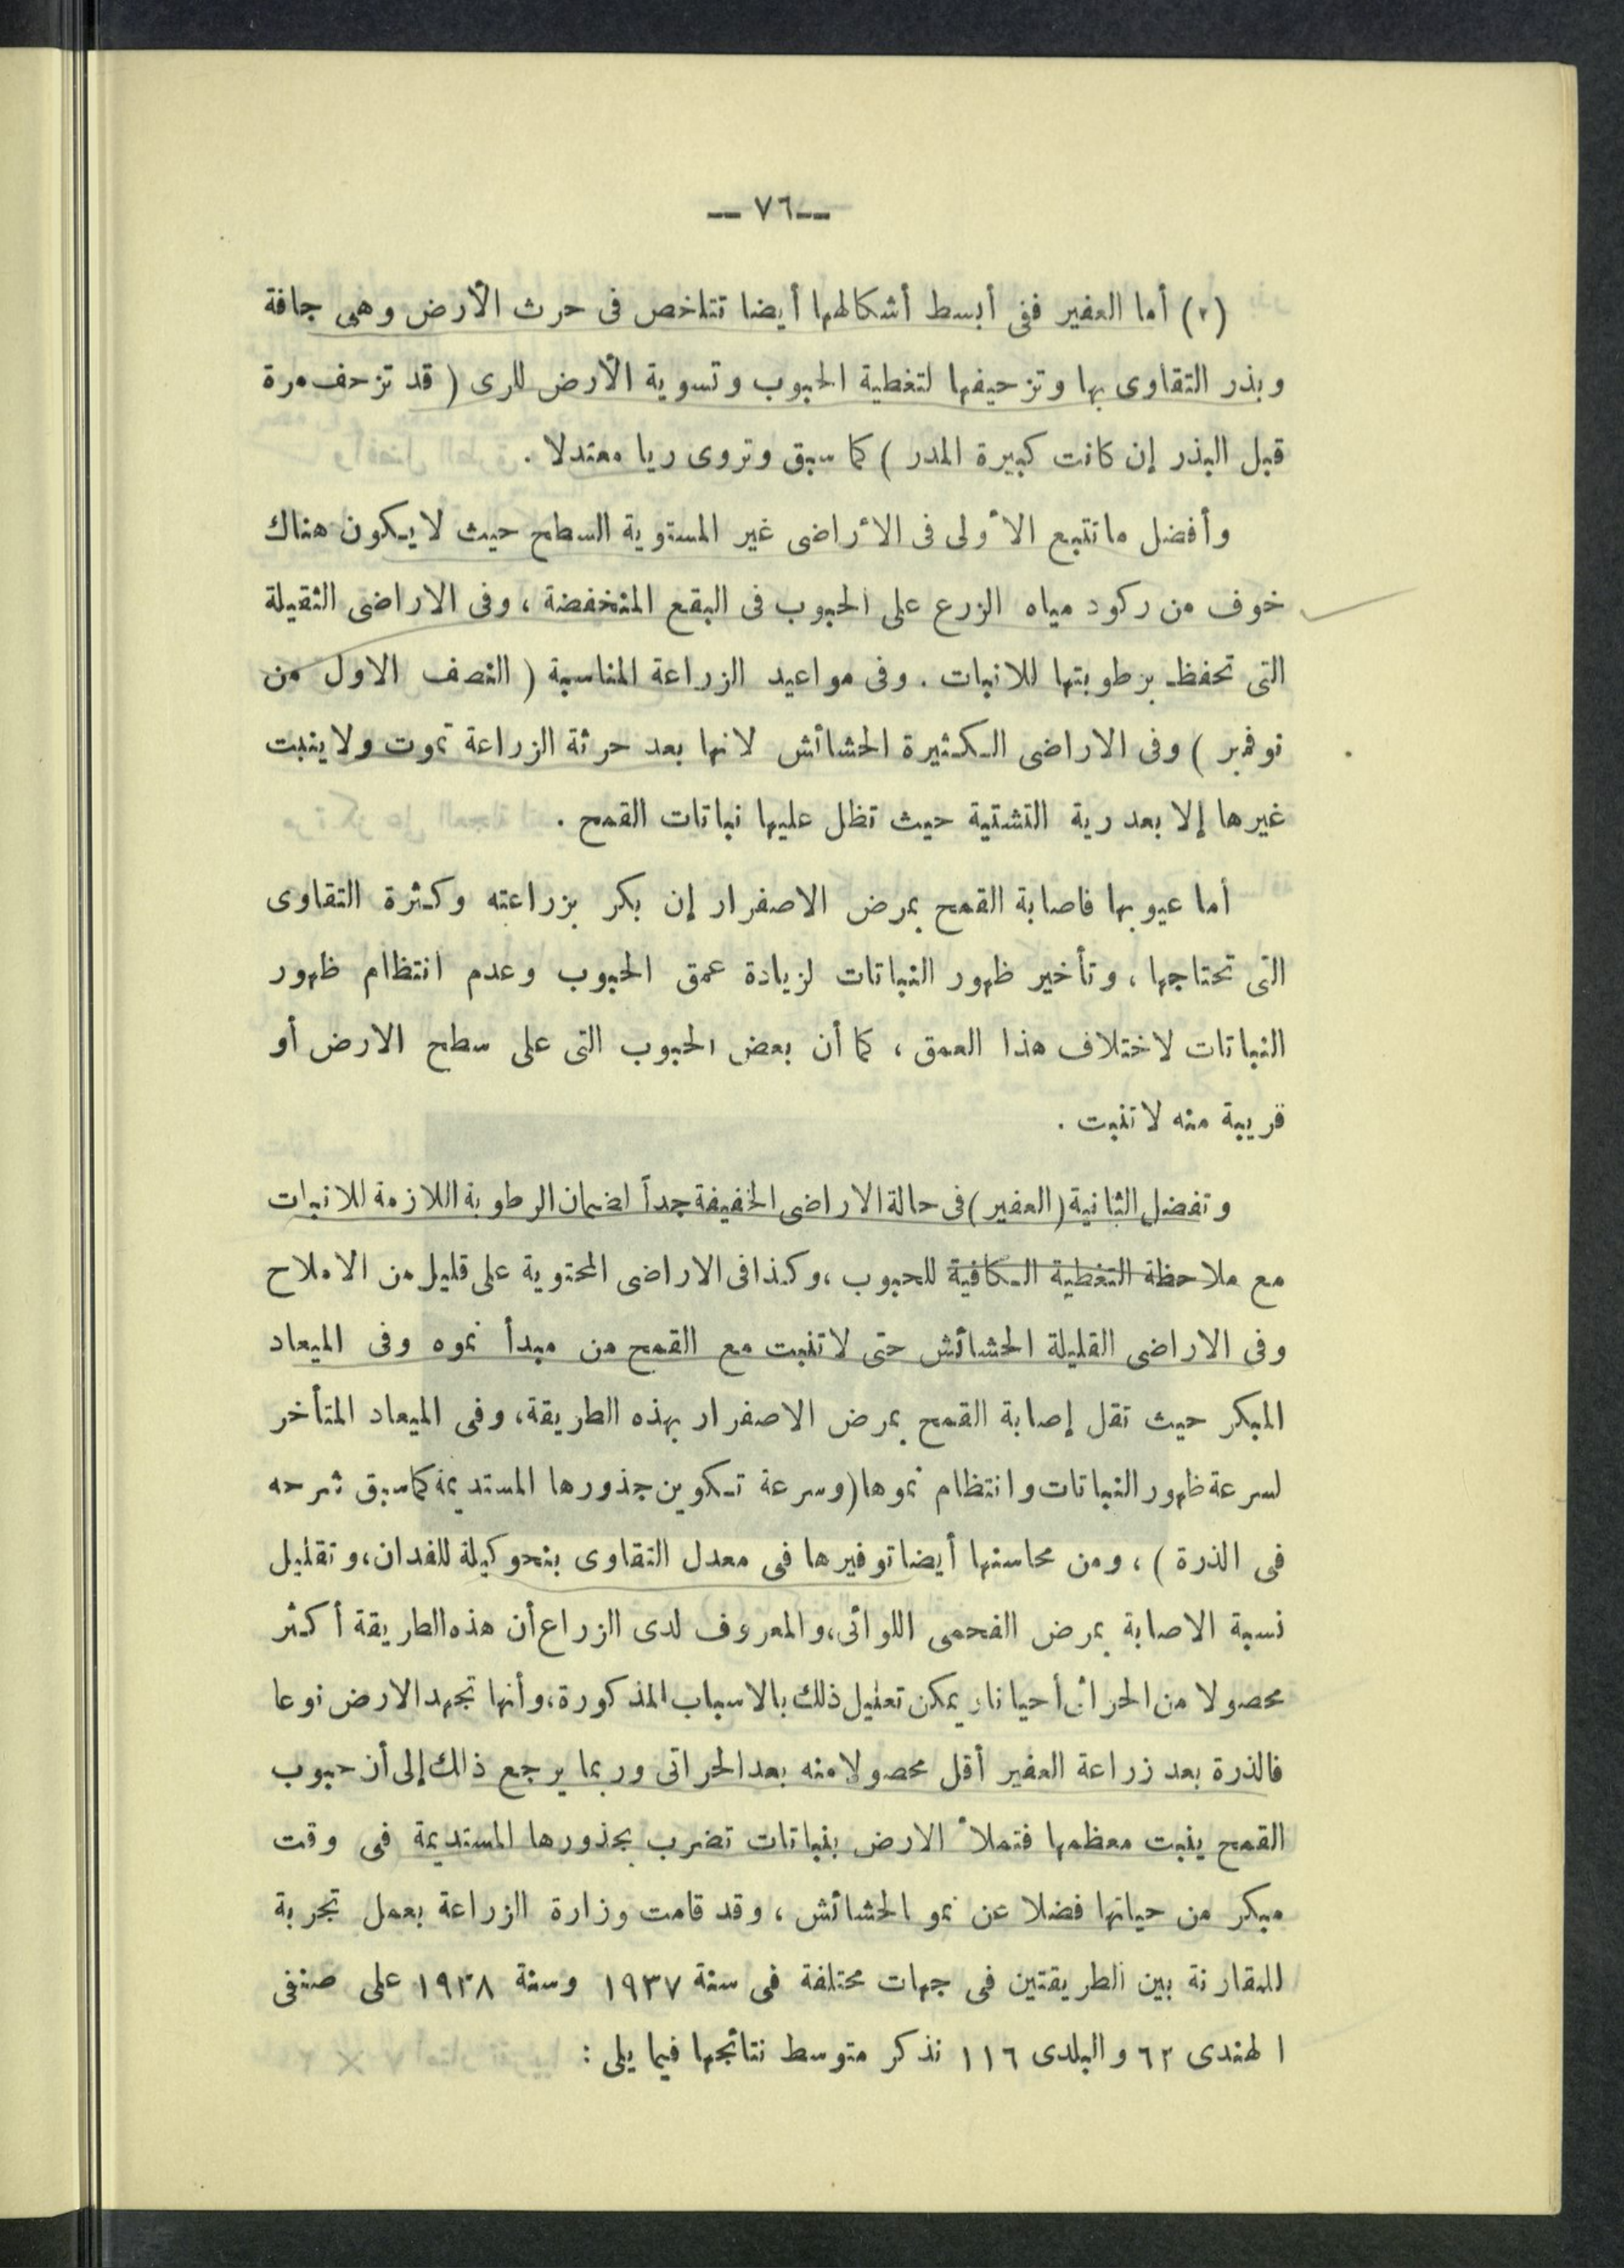 —٧٦—
(٢) أما العفير ففى أبسط أشكالها أيضا تتلخص فى حرث الأرض وهى جافة
وبذر التقاوى بها وتزحيفها لتغطية الحبوب وتسوية الأرض للرى ( قد تزحف مرة
قبل البذر إن كانت كبيرة المدر ) كما سبق وتروى ريا معتدلا .
وأفضل ما تتبع الأولى فى الأراضى غير المستوية السطح حيث لا يكون هناك
خوف من ركود مياه الزرع على الحبوب فى البقع المنخفضة ، وفى الاراضى الثقيلة
التى تحفظ برطوبتها للانبات . وفى مواعيد الزراعة المناسبة ( النصف الاول من
نوفمبر ) وفى الاراضى الكثيرة الحشائش لانها بعد حرثة الزراعة تموت ولا ينبت
غيرها إلا بعد رية التشتية حيث تظل عليها نباتات القمح .
أما عيوبها فاصابة القمح بمرض الاصفرار إن بكر بزراعته وكثرة التقاوى
التى تحتاجها ، وتأخير ظهور النباتات لزيادة عمق الحبوب وعدم انتظام ظهور
النباتات لاختلاف هذا العمق ، كما أن بعض الحبوب التى على سطح الارض أو
قريبة منه لا تنبت .
وتفضل الثانية ( العفير ) فى حالة الاراضى الخفيفة جداً لضمان الرطوبة اللازمة للانبات
مع ملاحظة التغطية الكافية للحبوب ، وكذا فى الاراضى المحتوية على قليل من الاملاح
وفى الاراضى القليلة الحشائش حتى لا تنبت مع القمح من مبدأ نموه وفى الميعاد
المبكر حيث تقل إصابة القمح بمرض الاصفرار بهذه الطريقة، وفى الميعاد المتأخر
لسرعة ظهور النباتات وانتظام نموها ( وسرعة تكوين جذورها المستديمة كما سبق شرحه
فى الذرة ) ، ومن محاسنها أيضا توفيرها فى معدل التقاوى بنحو كيلة للفدان، وتقليل
نسبة الاصابة بمرض الفحمى اللوائى، والمعروف لدى الزراع أن هذه الطريقة أكثر
محصولا من الحراثى أحيانا و يمكن تعليل ذلك بالاسباب المذكورة، وأنها تجهد الارض نوعا
فالذرة بعد زراعة العفير أقل محصولا منه بعد الحراتى وربما يرجع ذلك إلى أن حبوب
القمح ينبت معظمها فتملأ الارض بنباتات تضرب بجذورها المستديمة فى وقت
مبكر من حياتها فضلا عن نمو الحشائش ، وقد قامت وزارة الزراعة بعمل تجربة
للمقارنة بين الطريقتين فى جهات مختلفة فى سنة ١٩٣٧ وسنة ١٩٣٨ على صنفى
الهندى ٦٢ والبلدى ١١٦ نذكر متوسط نتائجها فيما يلى :